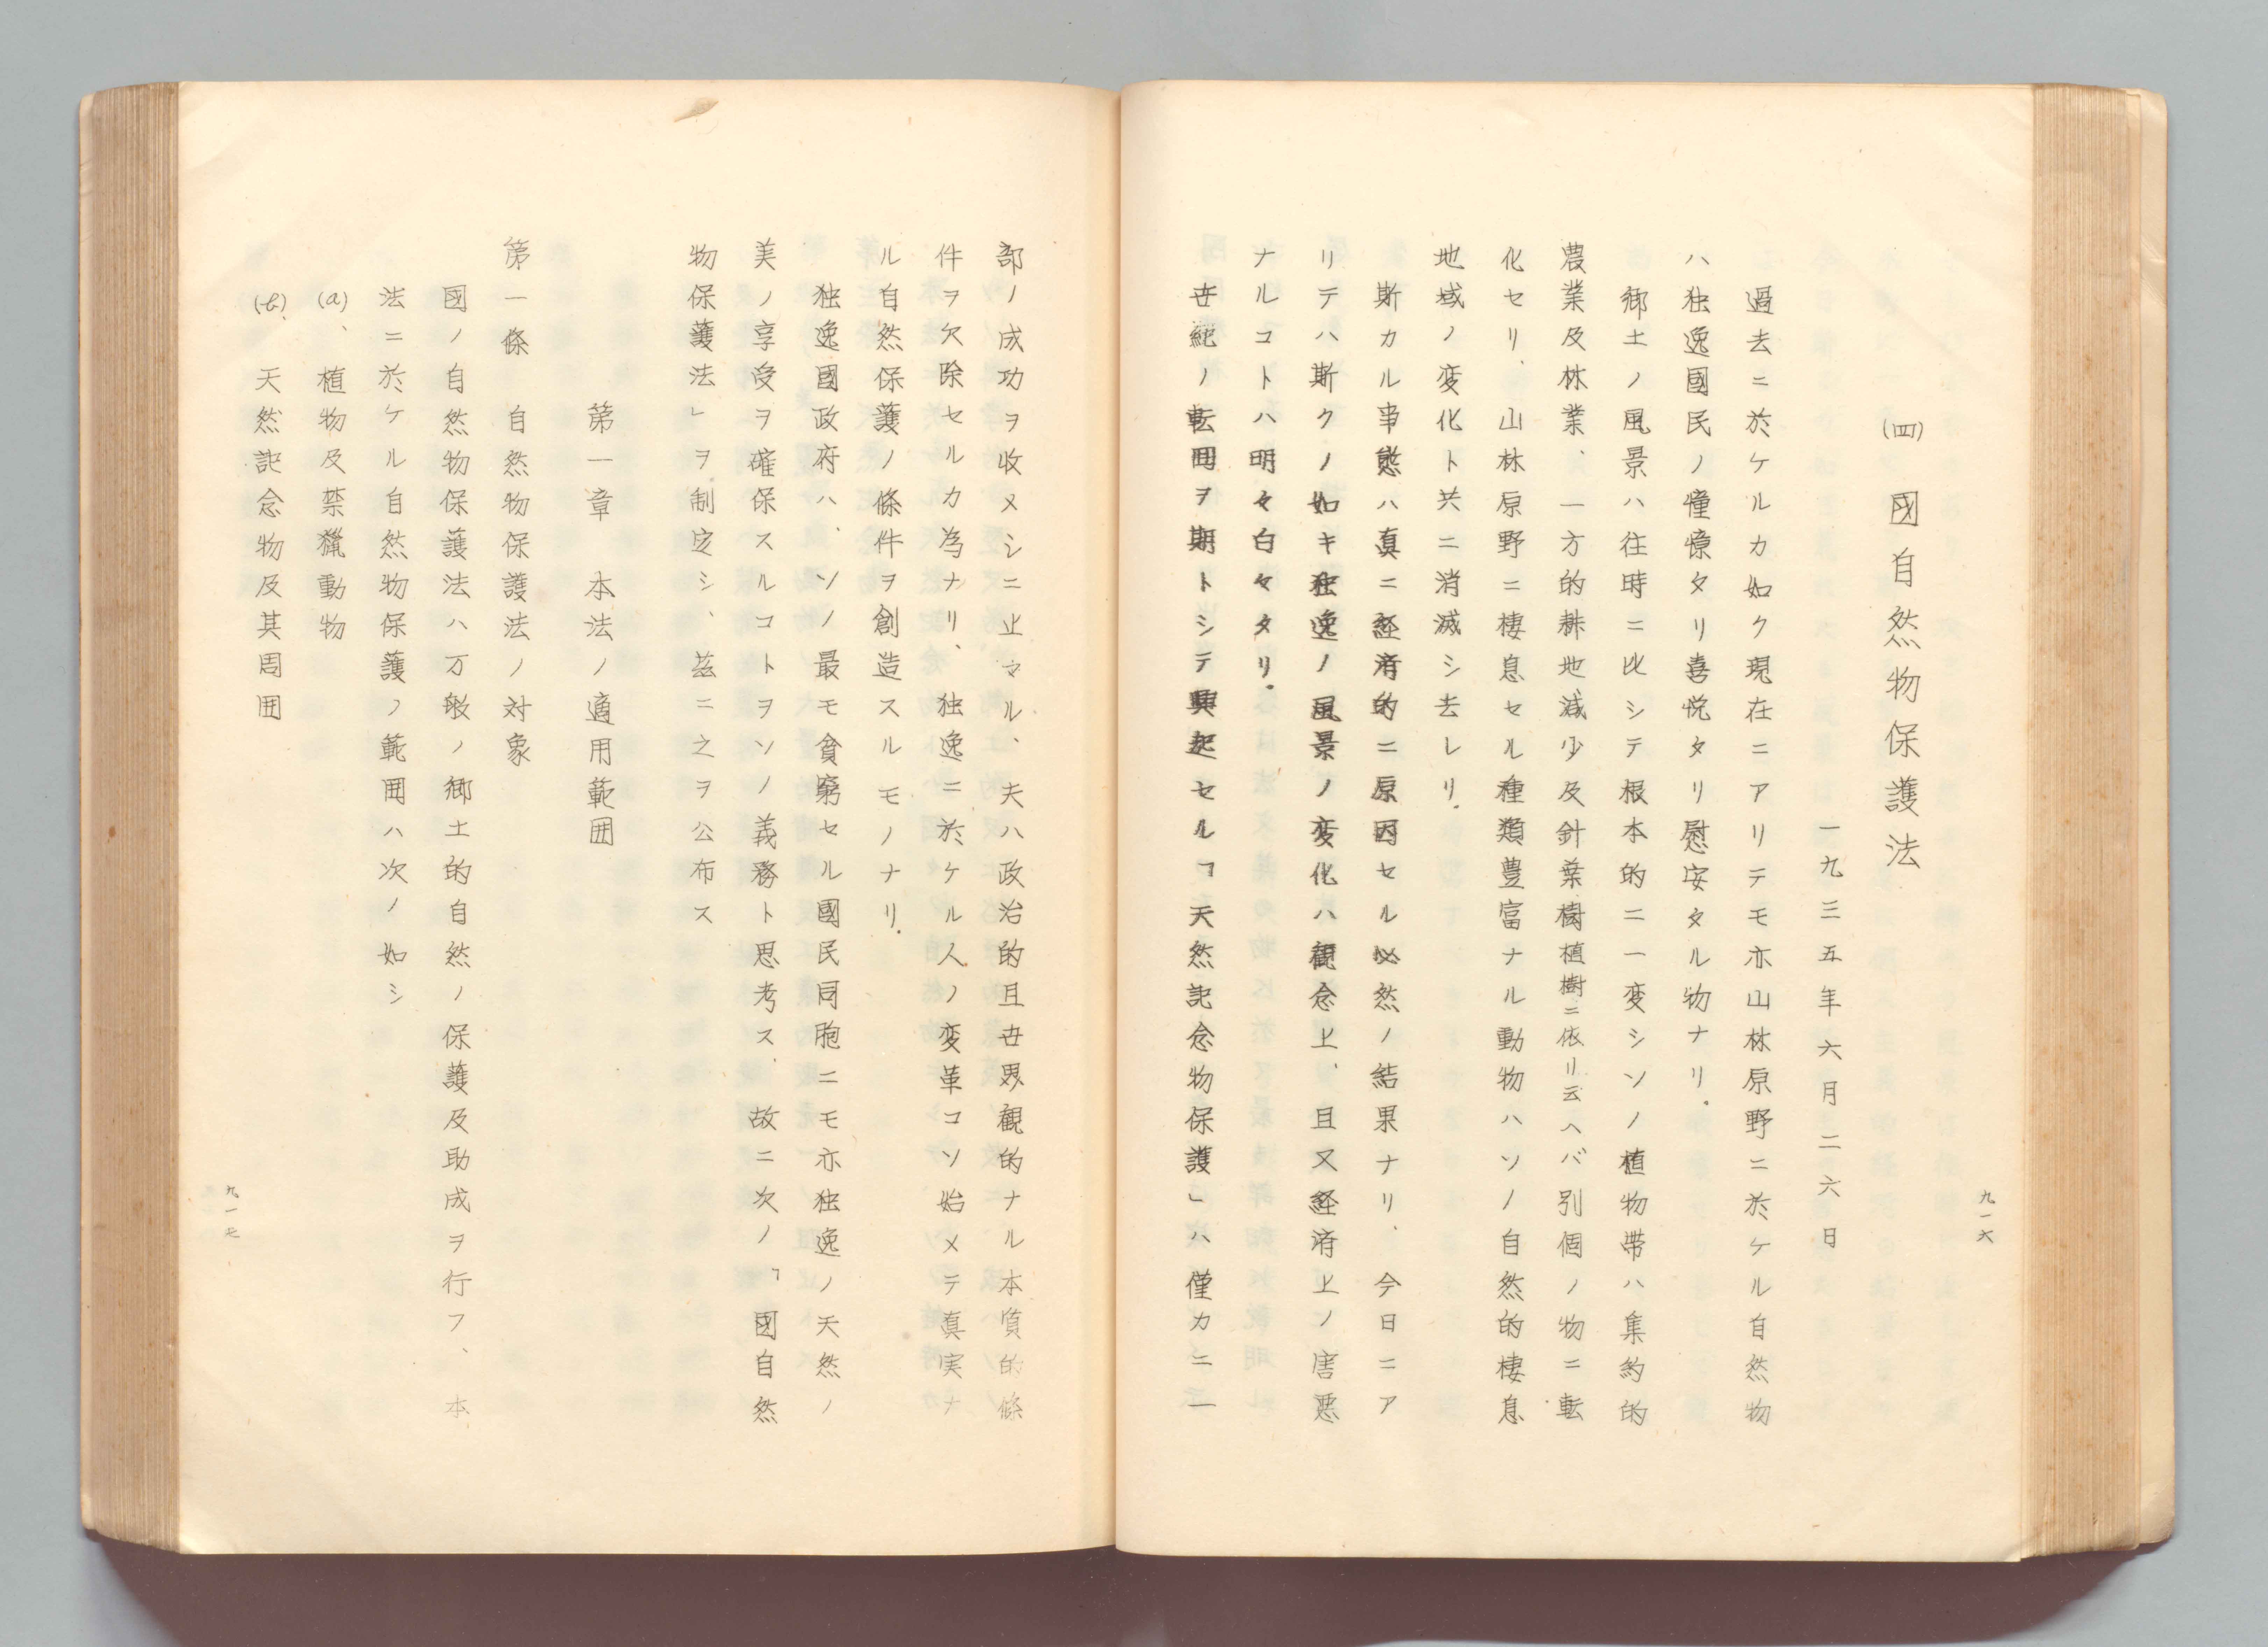 九一六
(四) 國自然物保護法
一九三五年六月二六日
過去ニ於ケルカ如ク現在ニアリテモ亦山林原野ニ於ケル自然物
ハ独逸國民ノ憧憬タリ喜悦タリ慰安タル物ナリ.
郷土ノ風景ハ往時ニ比シテ根本的ニ一変シソノ植物帯ハ集約的
農業及林業、一方的耕地減少及針葉樹植樹ニ依リ云ヘバ別個ノ物ニ転
化セリ、山林原野ニ棲息セル種類豊富ナル動物ハソノ自然的棲息
地域ノ変化ト共ニ消滅シ去レリ.
斯カル事態ハ真ニ経済的ニ原因セル必然ノ結果ナリ、今日ニア
リテハ斯クノ如キ独逸ノ風景ノ変化ハ観念上、且又経済上ノ害悪
ナルコトハ明々白々タリ.
世紀ノ転回ヲ期トシテ興起セル「天然記念物保護」ハ僅カニ一
部ノ成功ヲ收メシニ止マル、夫ハ政治的且世界観的ナル本質的條
件ヲ欠除セルカ為ナリ、独逸ニ於ケル人ノ変革コソ始メテ真実ナ
ル自然保護ノ條件ヲ創造スルモノナリ.
独逸國政府ハ、ソノ最モ貧窮セル國民同胞ニモ亦独逸ノ天然ノ
美ノ享受ヲ確保スルコトヲソノ義務ト思考ス、故ニ次ノ「國自然
物保護法」ヲ制定シ、茲ニ之ヲ公布ス
第一章 本法ノ適用範囲
第一條 自然物保護法ノ対象
國ノ自然物保護法ハ万般ノ郷土的自然ノ保護及助成ヲ行フ、本
法ニ於ケル自然物保護ノ範囲ハ次ノ如シ
(a)、植物及禁獵動物
(b)、天然記念物及其周囲
九一七